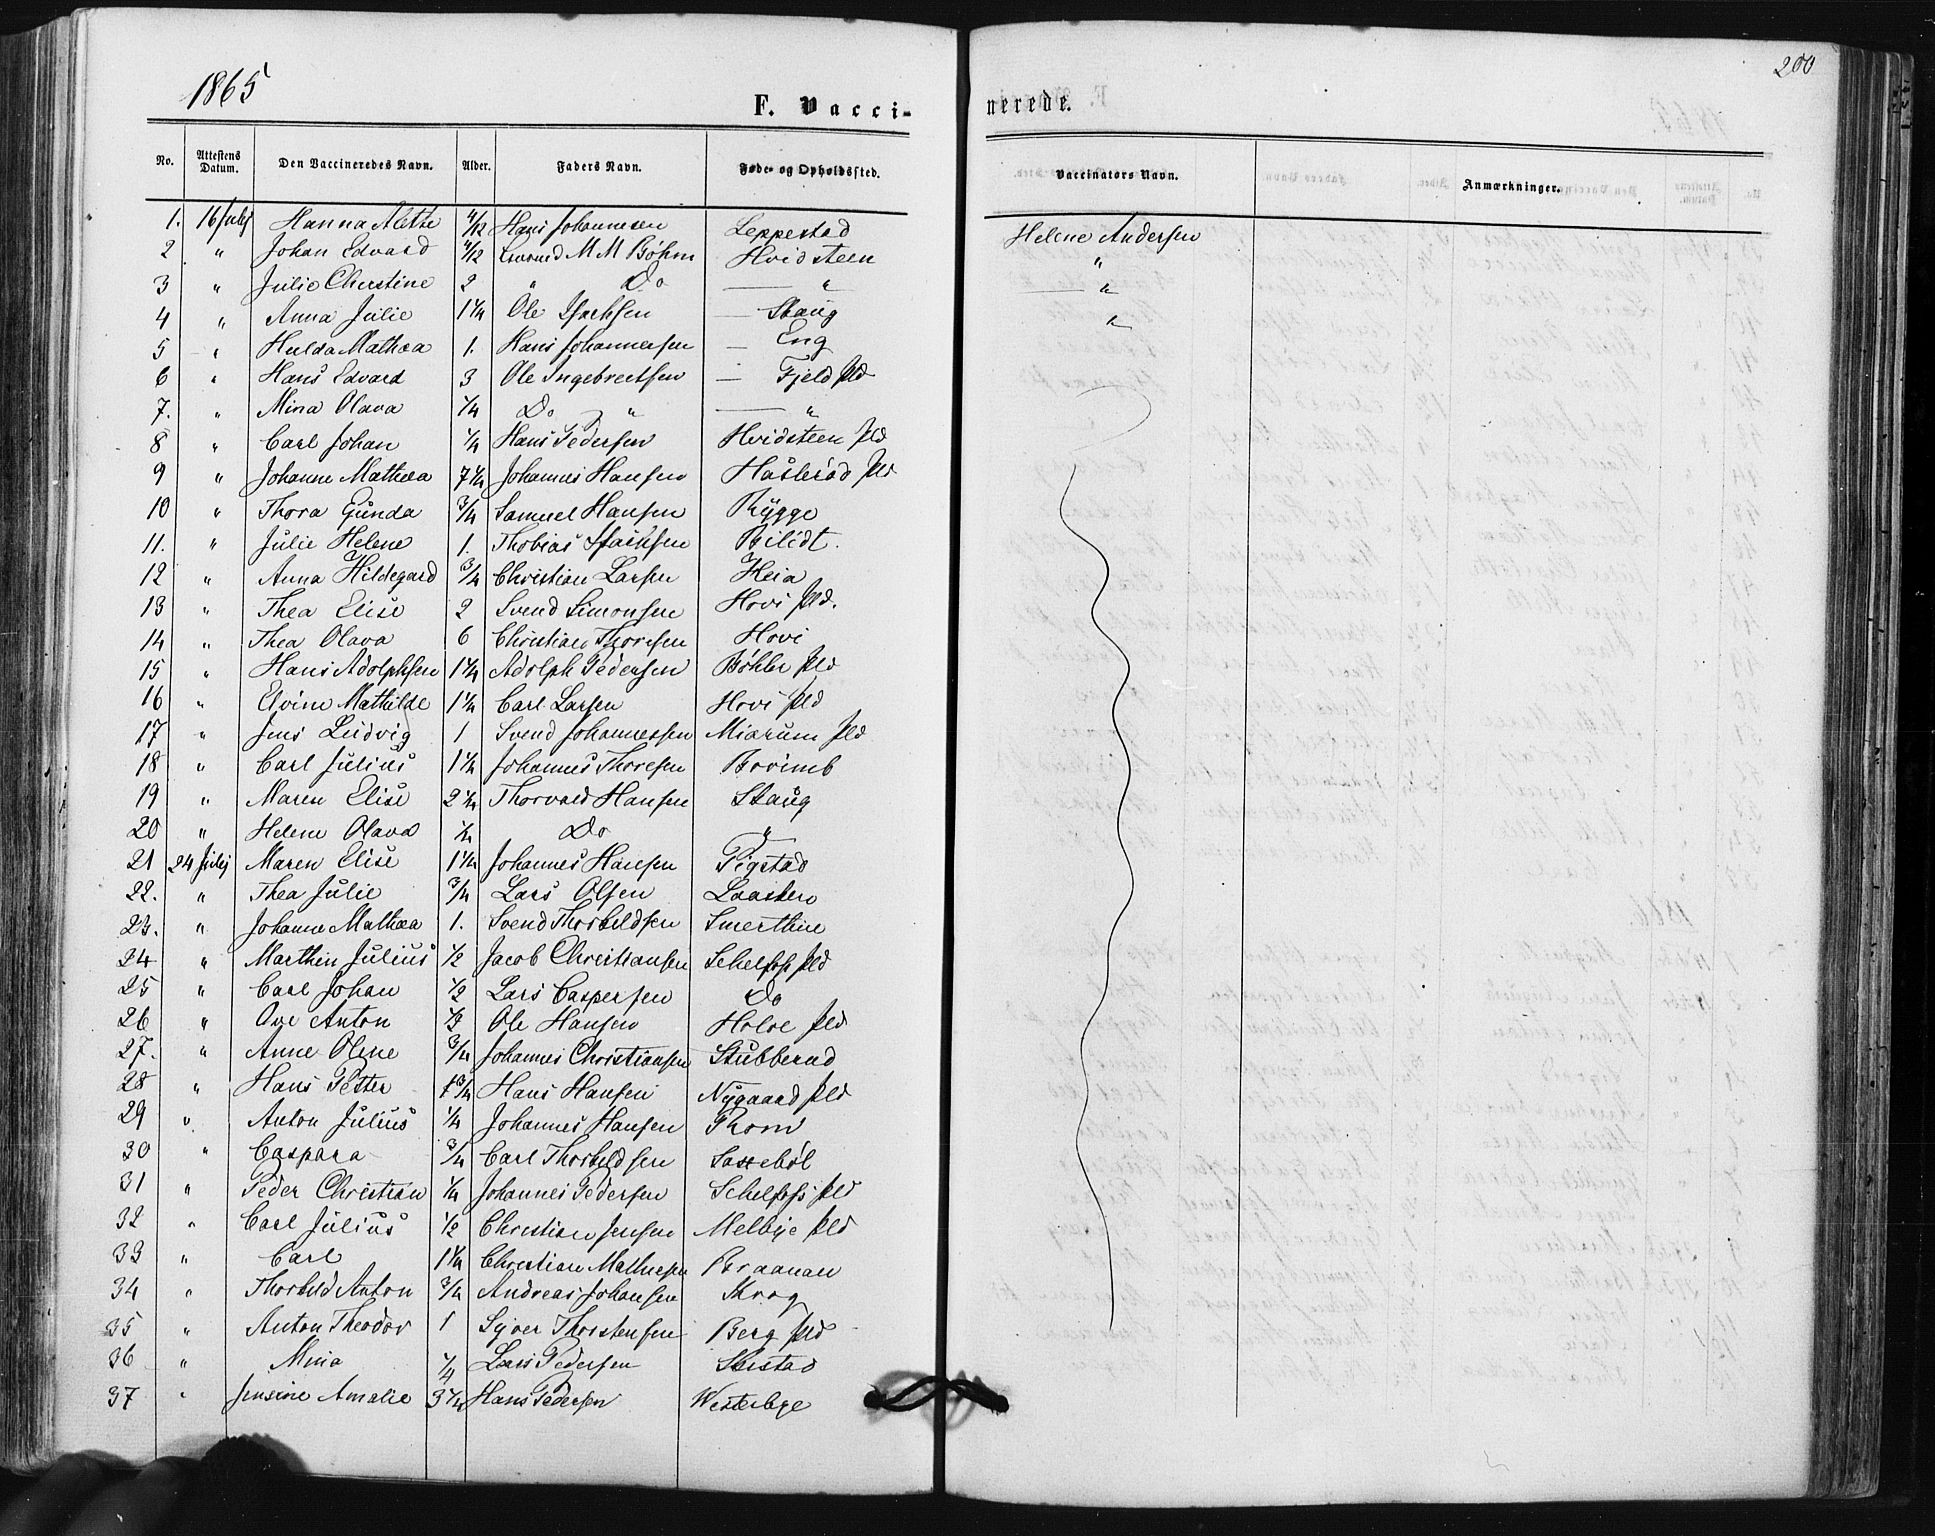 1865
200
F. Vaccinerede.
No. Attestens Datum. Den Vaccineredes Navn. Alder. Faders Navn. Føde- og Opholdssted. Vaccinators Navn. Anmærkninger.
1. 16 Julij Hanna Alette 4/12 Hans Johannesen Leppestad Helene Andersen
2 " Johan Edvard 4/12 M M Bøhm Hvidsteen "
3 " Julie Christine 2 " Do — " — "
4 " Anna Julie 1 1/4 Ole Isachsen — Skaug "
5 " Hulda Mathea 1. Hans Johannessen — Eng
6 " Hans Edvard 3 Ole Ingebretsen — Fjeld Pld
7. " Mina Olava 1/4 Do " — "
8 " Carl Johan 1/4 Hans Pedersen Hvidsteen Pld
9 " Johanne Mathea 7 1/4 Johannes Hansen Haslerød Pld
10 " Thora Gunda 3/4 Samuel Hansen Rygge
11. " Julie Helene 1. Thobias Isachsen Bilidt.
12 " Anna Hildegard 3/4 Christian Larsen Heia
13 " Thea Elise 2 Svend Simonsen Hovi Pld.
14 " Thea Olava 6 Christian Thoresen Hovi
15 " Hans Adolphsen 1 1/4 Adolph Pedersen Bøhler Pld
16 " Elvine Mathilde 1 1/4 Carl Larsen Hovi Pld
17 " Jens Ludvig 1 Svend Johannessen Miærum Pld
18 " Carl Julius 1 1/2 Johannes Thoresen
19 " Maren Elise 2 1/4 Thorvald Hansen Skaug
20 " Helene Olava 1/2 Do "
21 24 Julij Maren Elise 1 1/4 Johannes Hansen Pigstad
22. " Thea Julie 3/4 Lars Olsen Laasken
23. " Johanne Mathea 1. Svend Thorkildsen Smerthue
24 " Marthin Julius 1/2 Jacob Christiansen Schelfos Pld
25 " Carl Johan 1/2 Lars Caspersen Do
26 " Ove Anton 1/2 Ole Hansen Holoe Pld
27. " Anne Olene 3/4 Johannes Christiansen Stubberud
28 " Hans Petter 1 3/4 Hans Hansen Nygaard Pld
29 " Anton Julius 1/4 Johannes Hansen Rom
30 " Caspara 3/4 Carl Thorkildsen Sassebøl
31 " Peder Christian 1/4 Johannes Pedersen Schelfos Pld
32 " Carl Julius 1/2 Christian Jensen Melbye Pld
33 " Carl 1 1/4 Christian Mathiesen Braanan
34 " Thorkild Anton 3/4 Andreas Johansen Krog
35 " Anton Theodor 1 Syver Thorstensen Berg Pld
36 " Mina 1/4 Lars Pedersen Skistad
37 " Jensine Amalie 3 1/4 Hans Pedersen Westerbye